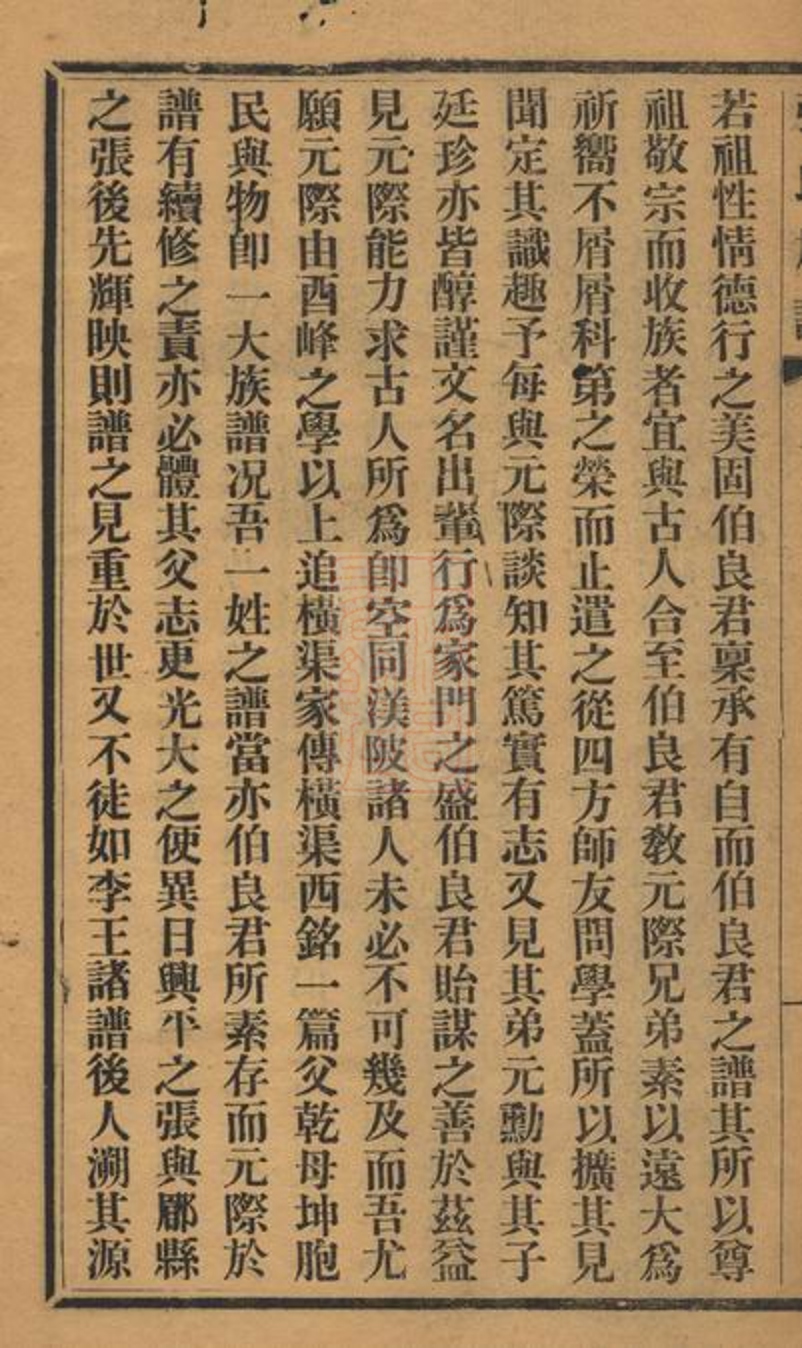 若祖性情德行之美固伯良君稟承有自而伯良君之譜其所以尊
祖敬宗而收族者宜與古人合至伯良君教元際兄弟素以遠大為
祈嚮不屑屑科第之榮而止遣之從四方師友問學蓋所以擴其見
聞定其識趣予每與元際談知其篤實有志又見其弟元勳與其子
廷珍亦皆醇謹文名出輩行為家門之盛伯良君貽謀之善於茲益
見元際能力求古人所為卽空同渼陂諸人未必不可幾及而吾尤
願元際由酉峰之學以上追橫渠家傳橫渠西銘一篇父乾母坤胞
民與物卽一大族譜况吾一姓之譜當亦伯良君所素存而元際於
譜有續修之責亦必體其父志更光大之使異日興平之張與郿縣
之張後先輝映則譜之見重於世又不徒如李王諸譜後人溯其源